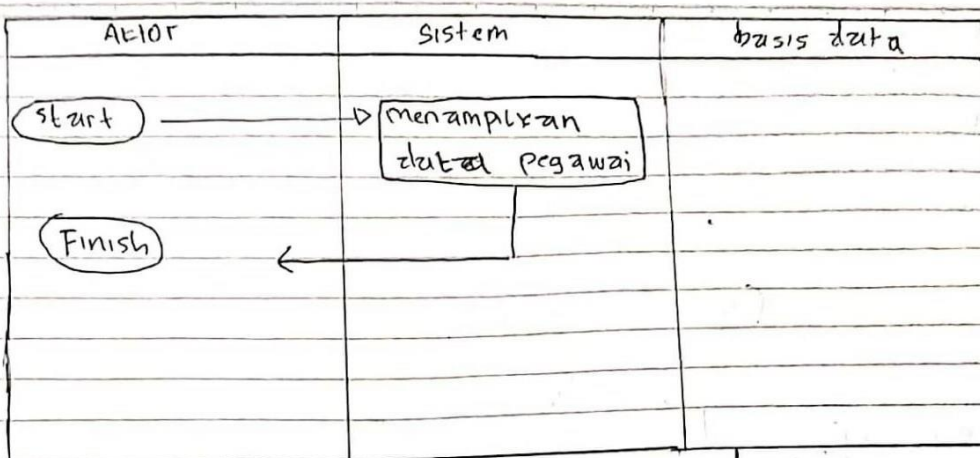 Aktor
Sistem
basis data
start
menampilkan
data pegawai
Finish